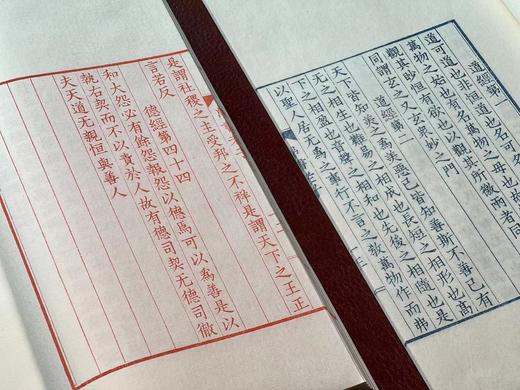 道經第一
道可道也非恒道也名可名
萬物之始也有名萬物之母也故
觀其妙恒有欲也以觀其所徼兩者同
同謂玄之又玄衆妙之門
道經第二
天下皆知美爲美惡已皆知善斯不善已有
无之相生也難易之相成也長短之相形也高
下之相盈也音聲之相和也先後之相隨也是
以聖人居无爲之事行不言之教萬物作而弗
是謂社稷之主受邦之不祥是謂天下之王正
言若反
德經第四十四
和大怨必有餘怨報怨以德焉可以爲善是以
執右契而不以責於人故有德司契无德司徹
夫天道无親恒與善人